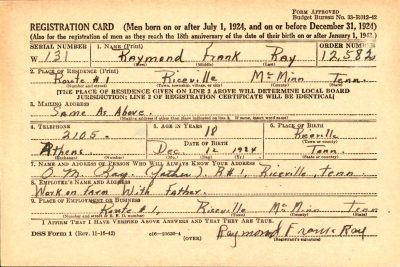 Form Approved
Budget Bureau No. 33-R012-42
REGISTRATION CARD (Men born on or after July 1, 1924, and on or before December 31, 1924)
(Also for the registration of men as they reach the 18th anniversary of the date of their birth on or after January 1,
SERIAL NUMBER 1. NAME (Print) ORDER NUMBER
W 131 Raymond Frank Ray 12,582
2. PLACE OF RESIDENCE (Print)
Route #1 Riceville McMinn Tenn.
(Number and street) (Town, township, village, or city) (County) (State)
[THE PLACE OF RESIDENCE GIVEN ON LINE 2 ABOVE WILL DETERMINE LOCAL BOARD
JURISDICTION; LINE 2 OF REGISTRATION CERTIFICATE WILL BE IDENTICAL]
3. MAILING ADDRESS
Same As Above.
[Mailing address if other than place indicated on line 2. If same, insert word same]
4. TELEPHONE 5. AGE IN YEARS 6. PLACE OF BIRTH
2105. 18 Riceville
DATE OF BIRTH (Town or county)
Athens Dec. 12 1924 Tenn
(Exchange) (Number) (Mo.) (Day) (Yr.) (State or country)
7. NAME AND ADDRESS OF PERSON WHO WILL ALWAYS KNOW YOUR ADDRESS
O. M. Ray. (Father). R#1, Riceville, Tenn.
8. EMPLOYER'S NAME AND ADDRESS
Work on farm With Father.
9. PLACE OF EMPLOYMENT OR BUSINESS
Route #1, Riceville McMinn Tenn
(Number and street or R. F. D. number) (Town) (County) (State)
I AFFIRM THAT I HAVE VERIFIED ABOVE ANSWERS AND THAT THEY ARE TRUE.
DSS Form 1 (Rev. 11-16-42) (OVER) Raymond Frank Ray
(Registrant's signature)